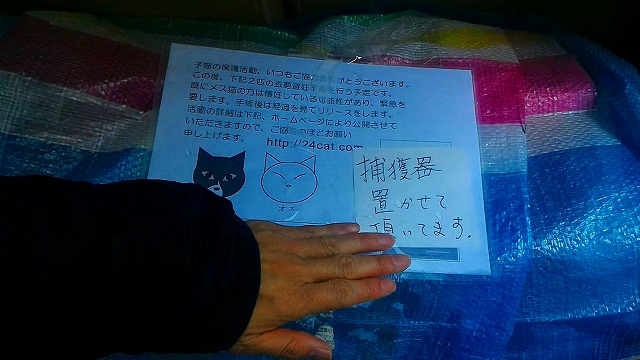 子猫の保護活動、いつもご協力ありがとうございます。
この度、下記2匹の去勢避妊手術を行う予定です。
既にメス猫の方は妊娠している可能性があり、緊急を
要します。手術後は経過を見てリリースをします。
活動の詳細は下記、ホームページにより公開させて
いただきますので、ご協力のほどお願い
申し上げます。
http://24cat.com
オス
捕獲器
置かせて
頂いてます。